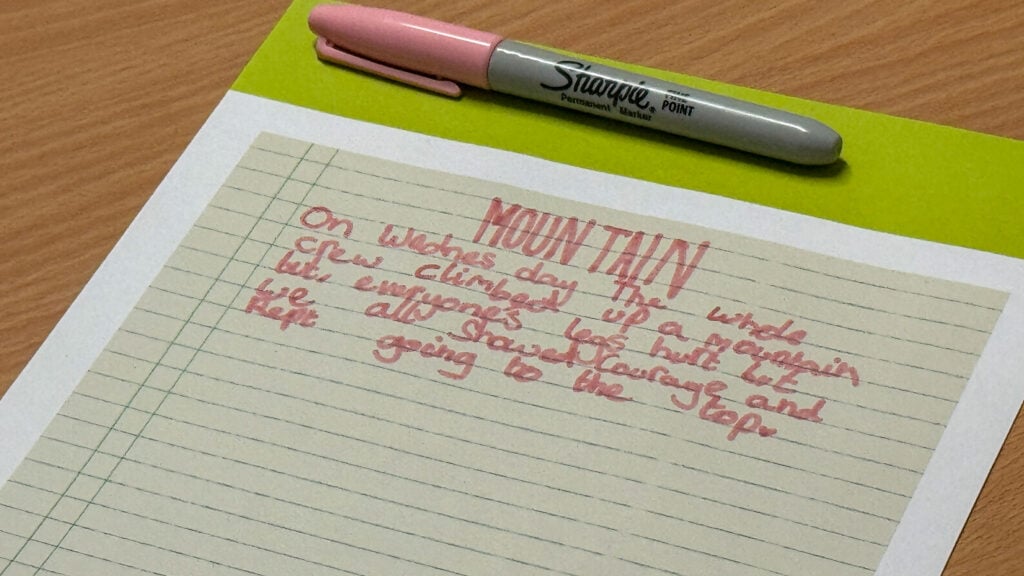 Sharpie®
FINE POINT
Permanent Marker
MOUNTAIN
On Wednes day the whole
crew climbed up a mountain
but, everyones legs hurt but
we all showed courage and
Kept going to the top.